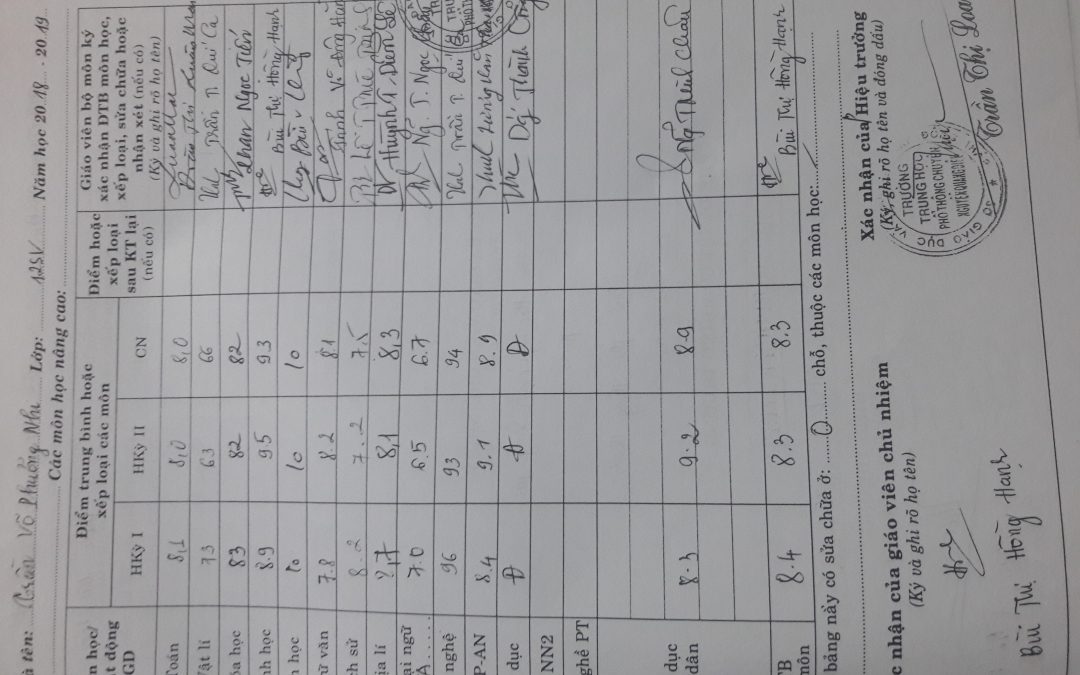 à tên: Trần Võ Phương Như Lớp: 12SV Năm học 2018 - 2019
Các môn học nâng cao:
n học/
t động
GD
Điểm trung bình hoặc
xếp loại các môn
HKỳ I HKỳ II CN
Điểm hoặc
xếp loại
sau KT lại
(nếu có)
Giáo viên bộ môn ký
xác nhận ĐTB môn học,
xếp loại, sửa chữa hoặc
nhận xét (nếu có)
(Ký và ghi rõ họ tên)
Toán 8,1 8,0 8,0
Vật lí 73 63 66 Trần T. Quí Ca
óa học 83 82 82 Phan Ngọc Tiến
nh học 8.9 9.5 9.3 Bùi Thị Hồng Hạnh
n học 10 10 10
ữ văn 7.8 8.2 8.1
ch sử 8.2 7.2 7.5
ịa lí 8,7 8,1 8,3 Huỳnh Diễm
ại ngữ 7.0 6.5 6.7 Ng. T. Ngọc
A
nghệ 96 93 94 Trần T. Quí
P-AN 8.4 9.1 8.9
dục Đ Đ Đ
NN2
ghề PT
dục
dân 8.3 9.2 8.9
TB
môn 8.4 8.3 8.3 Bùi Thị Hồng Hạnh
bảng này có sửa chữa ở: 0 chỗ, thuộc các môn học:
c nhận của giáo viên chủ nhiệm
(Ký và ghi rõ họ tên)
Bùi Thị Hồng Hạnh
Xác nhận của Hiệu trưởng
(Ký, ghi rõ họ tên và đóng dấu)
TRƯỜNG
TRUNG HỌC
PHỔ THÔNG CHUYÊN
Trần Thị Loan